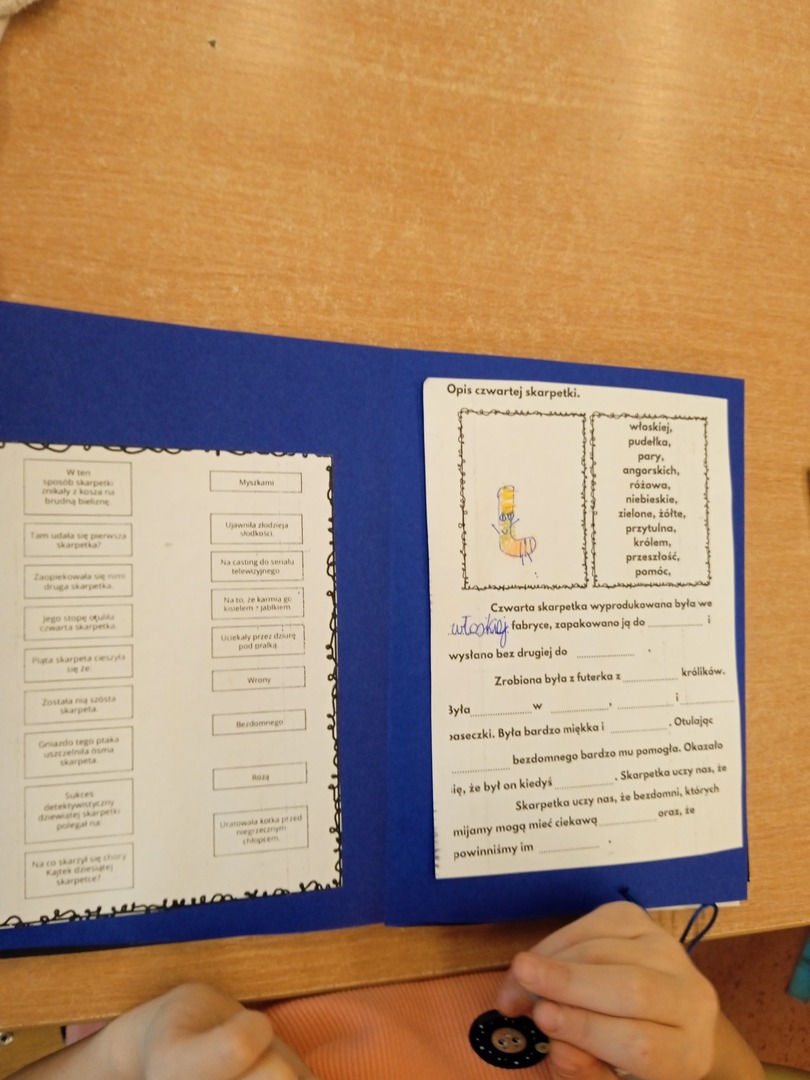 W ten
sposób skarpetki
znikały z kosza na
brudną bieliznę.
Tam udała się pierwsza
skarpetka?
Zaopiekowała się nimi
druga skarpetka.
Jego stopę otuliła
czwarta skarpetka.
Piąta skarpeta cieszyła
się że:
Została nią szósta
skarpeta.
Gniazdo tego ptaka
uszczelniła ósma
skarpeta.
Sukces
detektywistyczny
dziewiątej skarpetki
polegał na:
Na co skarżył się chory
Kajtek dziesiątej
skarpetce?
Myszkami
Ujawniła złodzieja
słodkości.
Na casting do serialu
telewizyjnego
Na to, że karmią go
kisielem z jabłkiem.
Uciekały przez dziurę
pod pralką.
Wrony
Bezdomnego
Różą
Uratowała kotka przed
niegrzecznym
chłopcem.
Opis czwartej skarpetki.
włoskiej,
pudełka,
pary,
angorskich,
różowa,
niebieskie,
zielone, żółte,
przytulna,
królem,
przeszłość,
pomóc,
Czwarta skarpetka wyprodukowana była we
włoskiej fabryce, zapakowano ją do ............... i
wysłano bez drugiej do ............... .
Zrobiona była z futerka z ............... królików.
Była ............... w ..............., ............... i ...............
paseczki. Była bardzo miękka i ............... . Otulając
............... bezdomnego bardzo mu pomogła. Okazało
się, że był on kiedyś ............... . Skarpetka uczy nas, że
Skarpetka uczy nas, że bezdomni, których
mijamy mogą mieć ciekawą ............... oraz, że
powinniśmy im ............... .